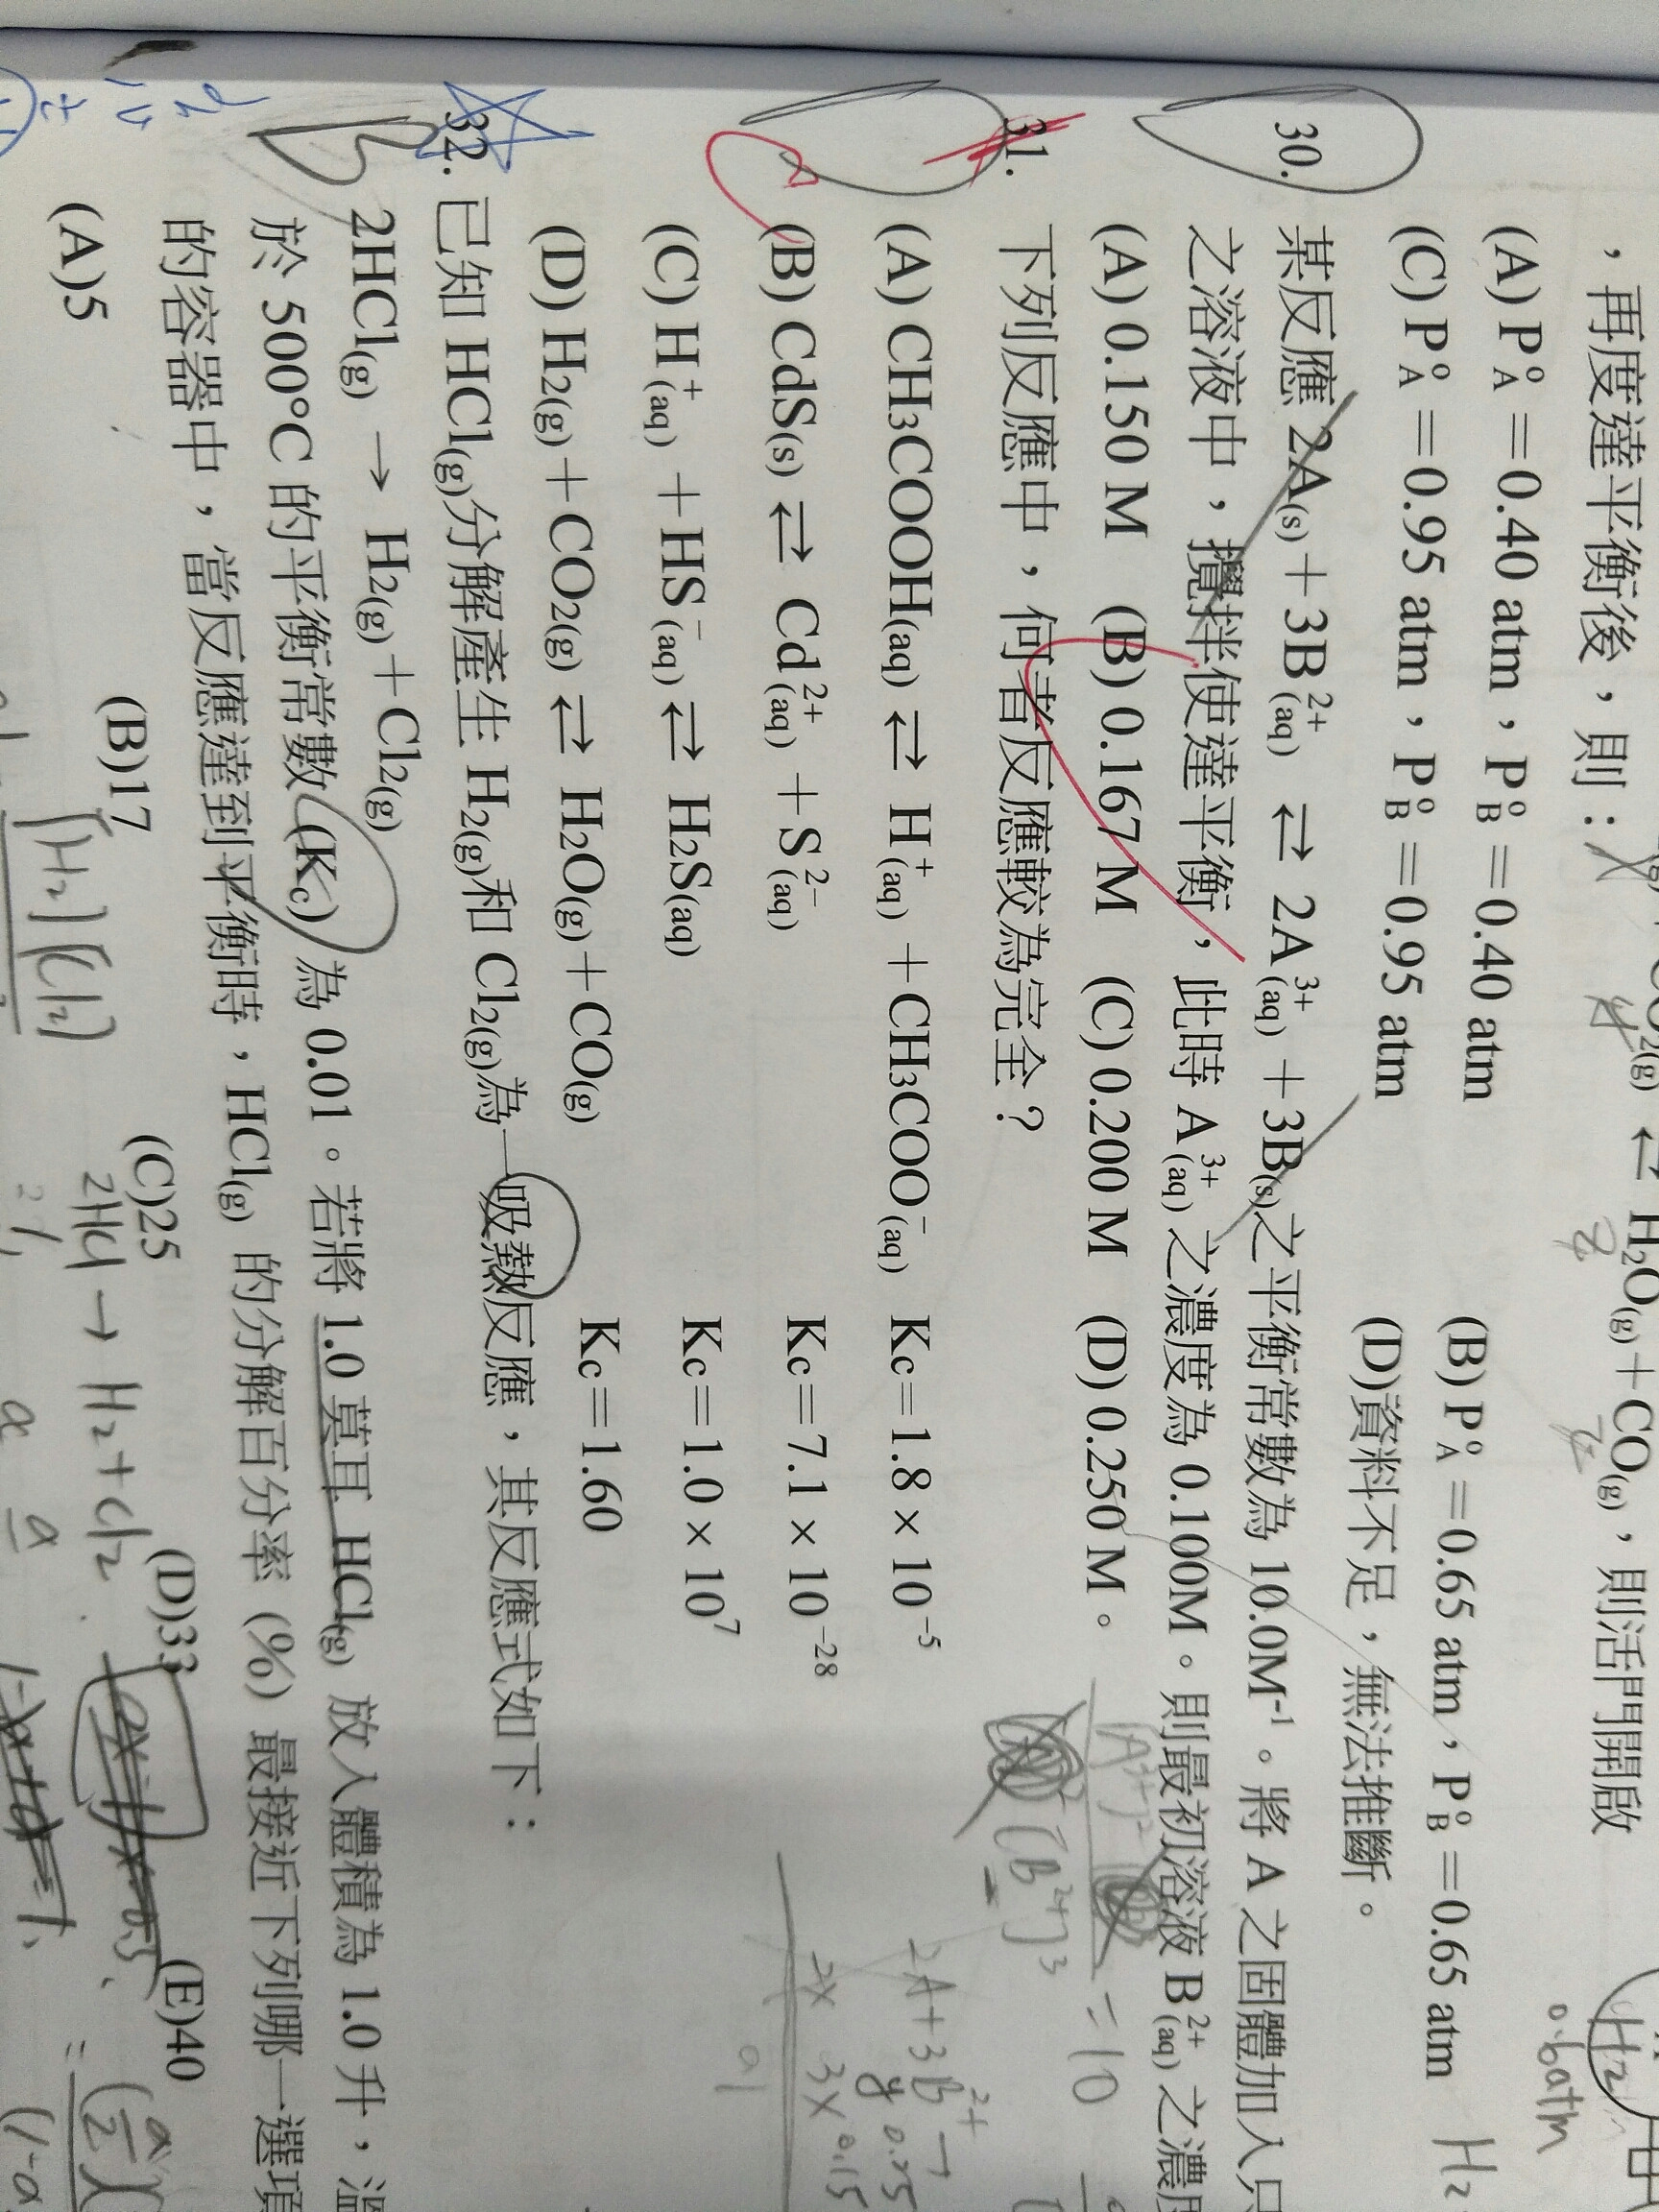 ，再度達平衡後，則：
(A) P°A＝0.40 atm，P°B＝0.40 atm (B) P°A＝0.65 atm，P°B＝0.65 atm
(C) P°A＝0.95 atm，P°B＝0.95 atm (D)資料不足，無法推斷。
H₂O(g)＋CO(g)，則活門開啟
0.6atm
H₂
30. 某反應 2A(s)＋3B²⁺(aq) ⇄ 2A³⁺(aq)＋3B(s)之平衡常數為 10.0M⁻¹。將 A 之固體加入只
之溶液中，攪拌使達平衡，此時 A³⁺(aq)之濃度為 0.100M。則最初溶液 B²⁺(aq)之濃
(A) 0.150 M (B) 0.167 M (C) 0.200 M (D) 0.250 M。
31. 下列反應中，何者反應較為完全？
(A) CH₃COOH(aq) ⇄ H⁺(aq)＋CH₃COO⁻(aq) Kc＝1.8 × 10⁻⁵
(B) CdS(s) ⇄ Cd²⁺(aq)＋S²⁻(aq) Kc＝7.1 × 10⁻²⁸
(C) H⁺(aq)＋HS⁻(aq) ⇄ H₂S(aq) Kc＝1.0 × 10⁷
(D) H₂(g)＋CO₂(g) ⇄ H₂O(g)＋CO(g) Kc＝1.60
＝10
2A+3B²⁺→
2x 3x 0.15
32. 已知 HCl(g)分解產生 H₂(g)和 Cl₂(g)為一吸熱反應，其反應式如下：
2HCl(g) → H₂(g)＋Cl₂(g)
於 500°C 的平衡常數(Kc)為 0.01。若將 1.0 莫耳 HCl(g) 放入體積為 1.0 升，溫
的容器中，當反應達到平衡時，HCl(g) 的分解百分率（%）最接近下列哪一選項
(A)5 (B)17 (C)25 (D)33 (E)40
[H₂][Cl₂]
2HCl → H₂+Cl₂